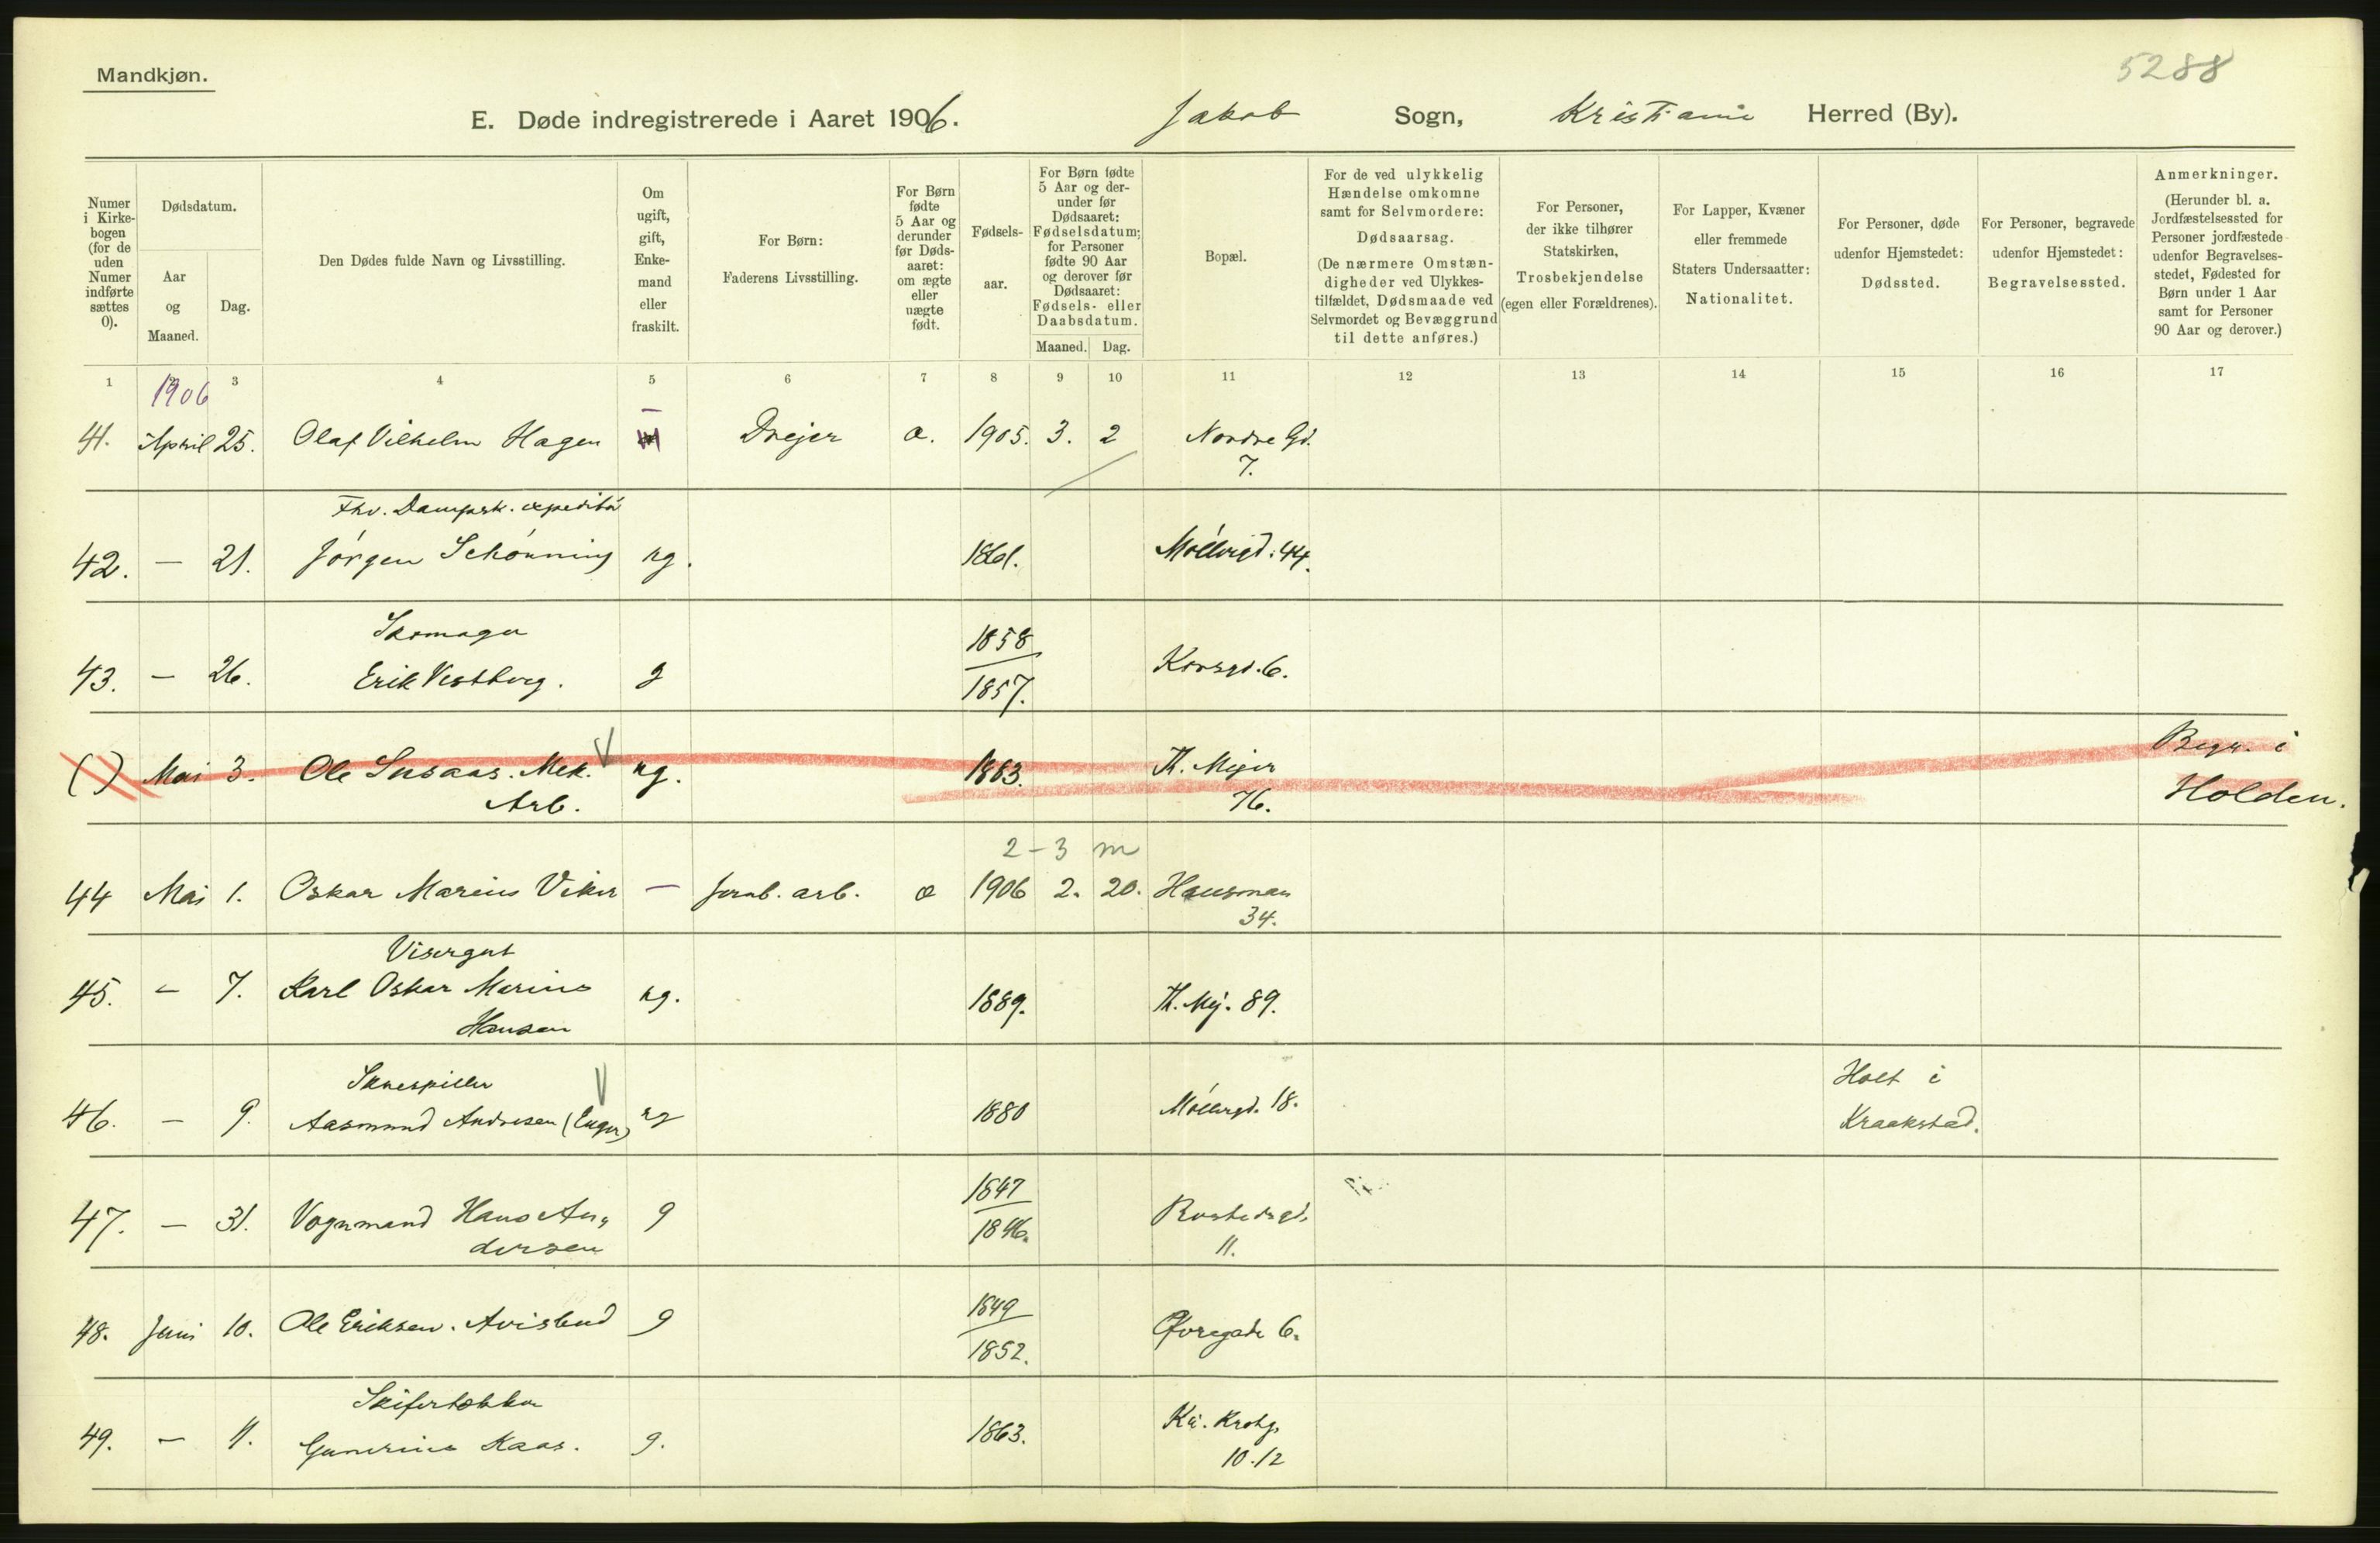 Mandkjøn.
5288
E. Døde indregistrerede i Aaret 1906. Jakob Sogn, Kristiania Herred (By).
Numer i Kirkebogen (for de uden Numer indførte sættes 0).
Dødsdatum.
Aar og Maaned.
Dag.
Den Dødes fulde Navn og Livsstilling.
Om ugift, gift, Enkemand eller fraskilt.
For Børn: Faderens Livsstilling.
For Børn fødte 5 Aar og derunder før Dødsaaret: om ægte eller uægte født.
Fødselsaar.
For Børn fødte 5 Aar og derunder før Dødsaaret: Fødselsdatum; for Personer fødte 90 Aar og derover før Dødsaaret: Fødsels- eller Daabsdatum.
Maaned. Dag.
Bopæl.
For de ved ulykkelig Hændelse omkomne samt for Selvmordere: Dødsaarsag. (De nærmere Omstændigheder ved Ulykkestilfældet, Dødsmaade ved Selvmordet og Bevæggrund til dette anføres.)
For Personer, der ikke tilhører Statskirken, Trosbekjendelse (egen eller Forældrenes).
For Lapper, Kvæner eller fremmede Staters Undersaatter: Nationalitet.
For Personer, døde udenfor Hjemstedet: Dødssted.
For Personer, begravede udenfor Hjemstedet: Begravelsessted.
Anmerkninger. (Herunder bl. a. Jordfæstelsessted for Personer jordfæstede udenfor Begravelsesstedet, Fødested for Børn under 1 Aar samt for Personer 90 Aar og derover.)
1 3 4 5 6 7 8 9 10 11 12 13 14 15 16 17
1906
41. April 25. Olaf Vilhelm Hagen — Drejer a. 1905. 3. 2 Nordre Gd.
7.
Fhv. Dampsk. expeditør
42. — 21. Jörgen Schönning ug. 1861. Möllergd. 44.
Skomager
43. — 26. Erik Vestberg. g 1858
1857. Korsgd. 6.
( ) Mai 3. Ole Susaas. Mek. ug. 1883. Th. Mejer Begr. i
Arb. 76. Holden.
2-3 m
44 Mai 1. Oskar Marius Viker — Jernb. arb. a 1906 2. 20. Hausman
34.
Visergut
45. — 7. Karl Oskar Marius ug. 1889. Th. Mej. 89.
Hansen
Skuespiller
46. — 9. Aasmund Andresen (Enger) ug 1880 Möllergd. 18. Holt i
Kraakstad.
47. — 31. Vognmand Hans An- g 1847
1846. Rostedsgd.
dersen 11.
48. Juni 10. Ole Eriksen. Avisbud g 1849
1852. Øvregade 6.
Skifertækker
49. — 11. Gunerius Kaas. g. 1863. Kr. Krohgs
10.12